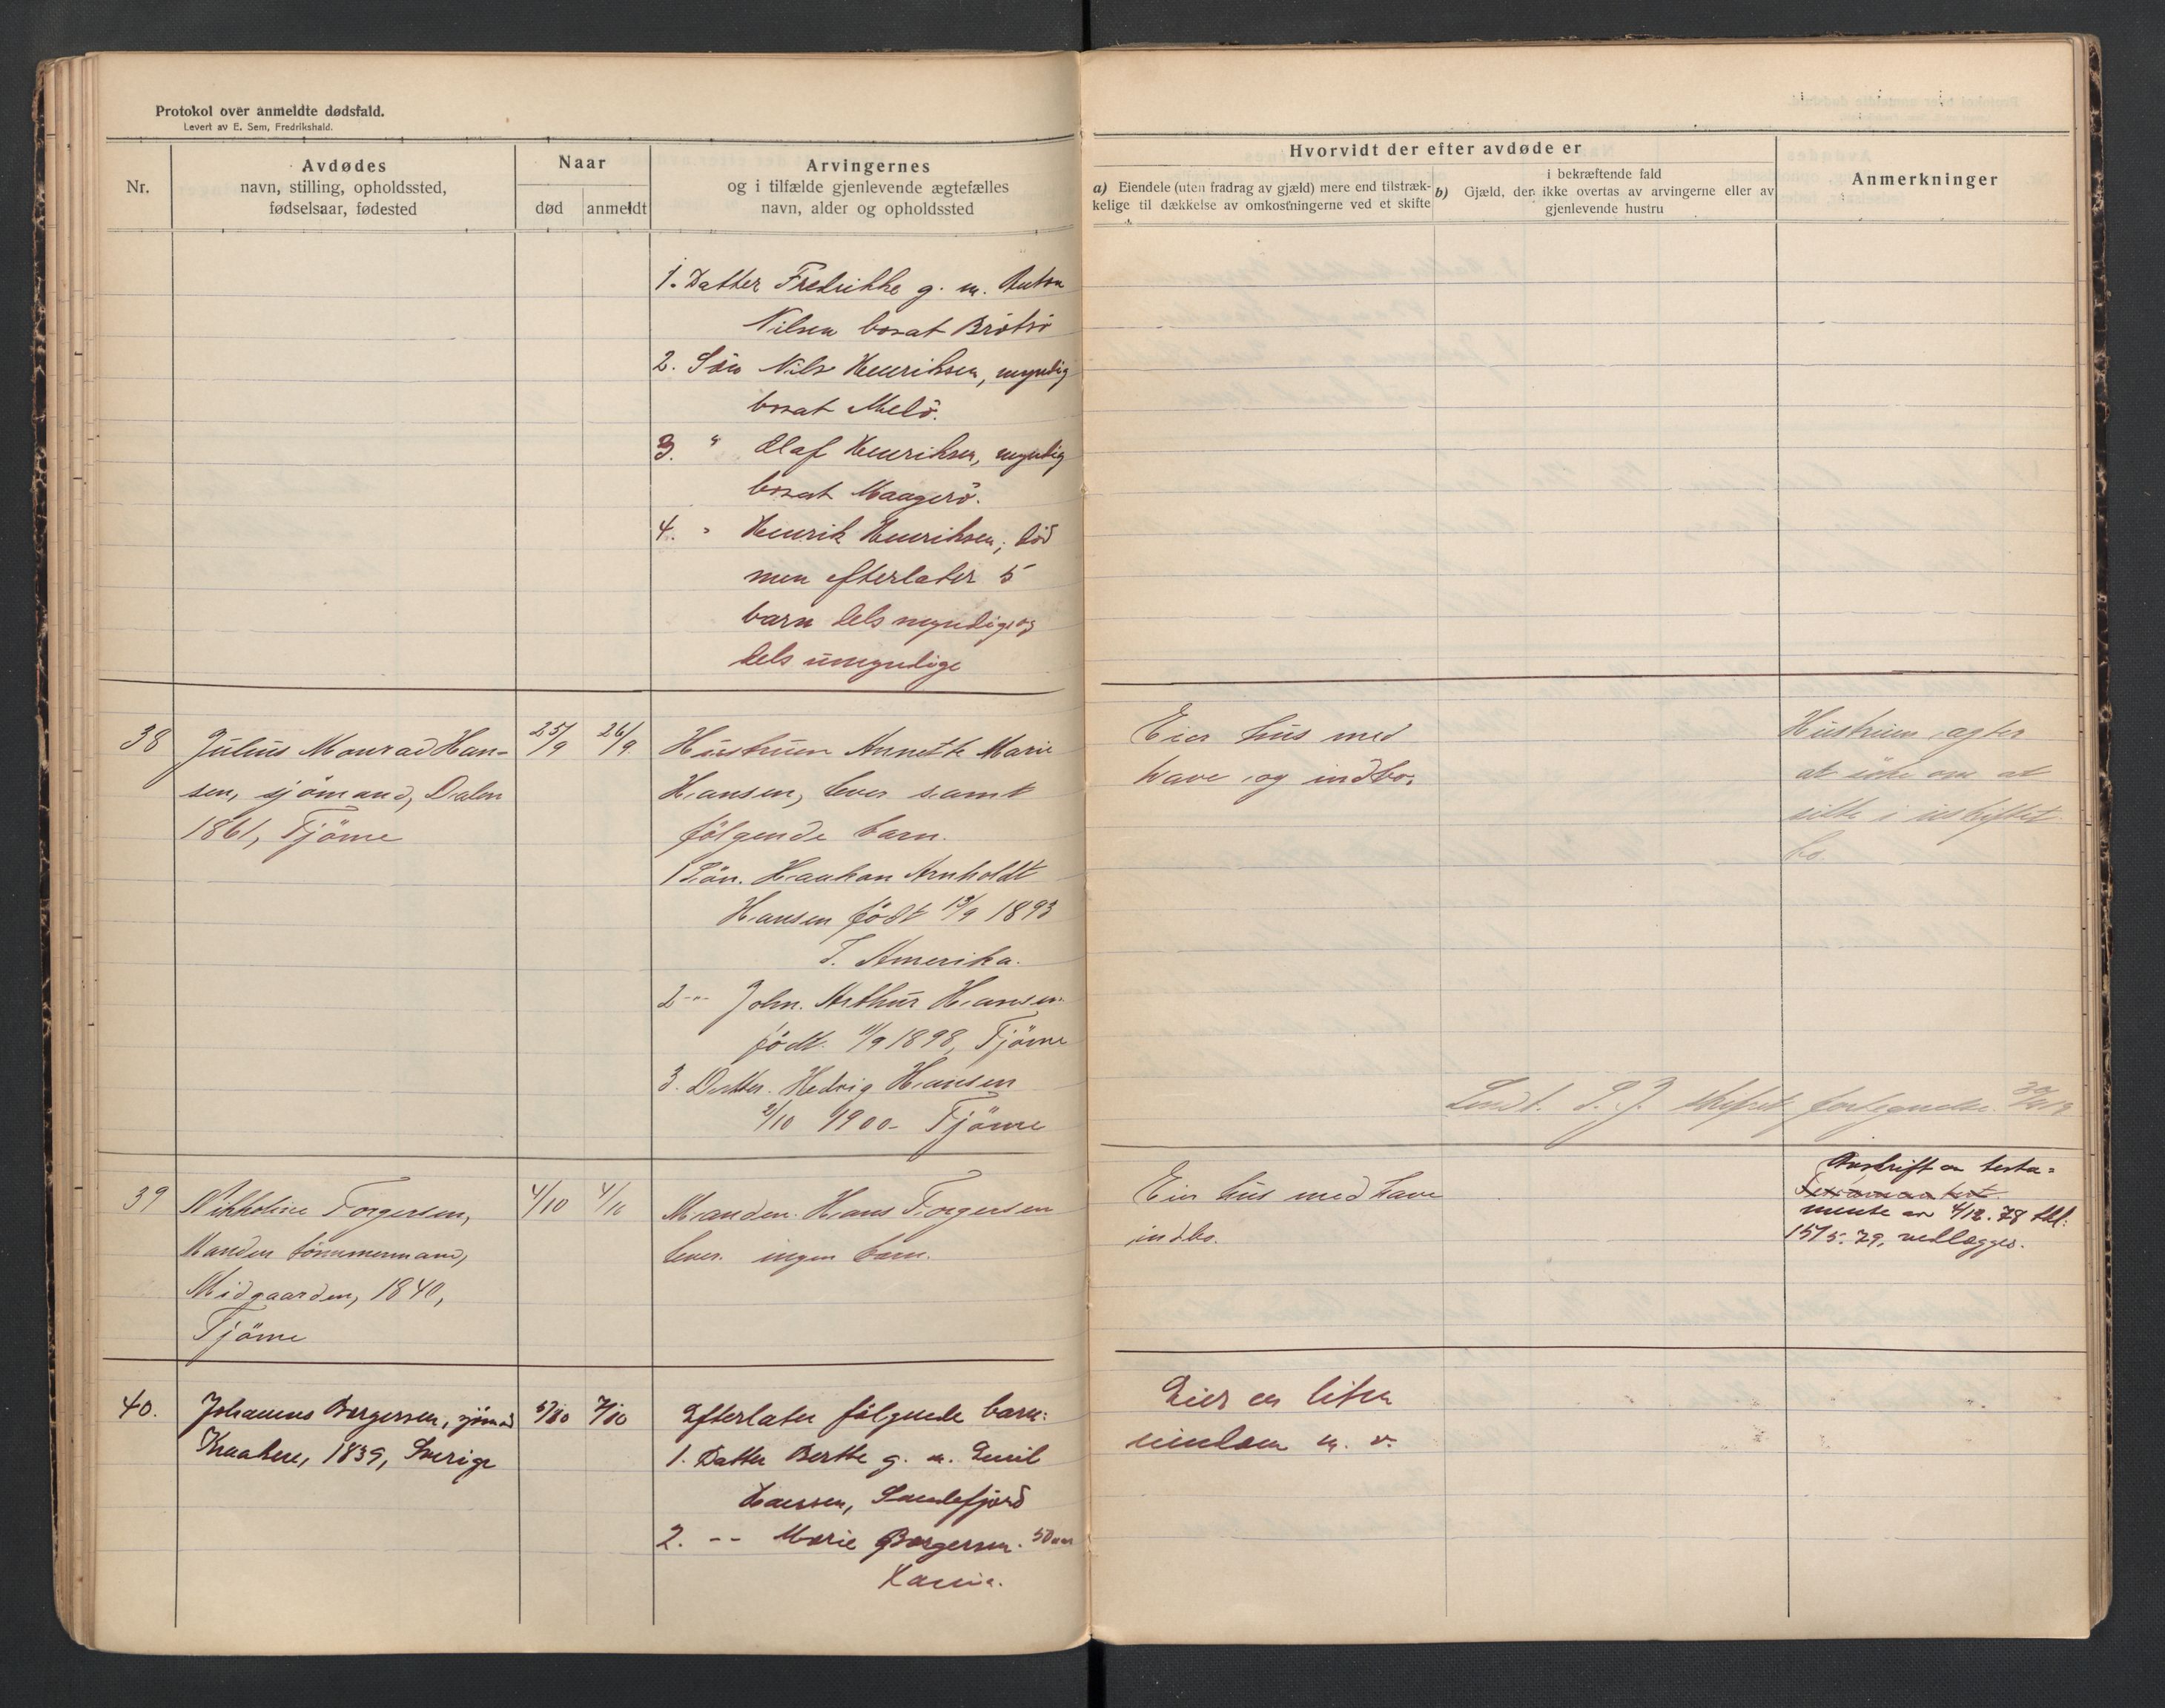 Protokol over anmeldte dødsfald.
Levert av E. Sem, Fredrikshald.
Nr.
Avdødes
navn, stilling, opholdssted,
fødselsaar, fødested
Naar
død
anmeldt
Arvingernes
og i tilfælde gjenlevende ægtefælles
navn, alder og opholdssted
1. Datter Fredrikke g. m. Anton
Nilsen bosat Brötsö
2. Sön Nils Henriksen, myndig
bosat Melö.
3. " Olaf Henriksen, myndig
bosat Maagerö.
4. " Henrik Henriksen, död
men efterlater 5
barn dels myndige og
dels umyndige
38
Julius Monrad Han-
sen, sjömand, Dalen
1861, Tjöme
25/9
26/9
Hustruen Annette Marie
Hansen, lever samt
fölgende barn.
1 Sön. Haakon Arnholdt
Hansen födt 13/9 1893
I. Amerika.
2 -"- John. Arthur Hansen
födt. 11/9 1898, Tjöme
3. Datter. Hedvig Hansen
2/10 1900- Tjöme
39
Nikkoline Torgersen,
Manden tömmermand,
Midgaarden, 1840,
Tjöme
4/10
4/10
Manden Hans Torgersen
lever. ingen barn.
40.
Johannes Borgersen, sjömand
Kraakere, 1839, Sverige
5/10
7/10
Efterlater fölgende barn:
1. Datter Berthe g. m. Emil
Hanssen, Sandefjord
2. -- Marie Borgersen. 50 aar
Xania.
Hvorvidt der efter avdøde er
a) Eiendele (uten fradrag av gjæld) mere end tilstræk-
kelige til dækkelse av omkostningerne ved et skifte
i bekræftende fald
b) Gjæld, der ikke overtas av arvingerne eller av
gjenlevende hustru
Anmerkninger
Eier hus med
have og indbo.
Hustruen agter
at söke om at
sitte i uskiftet
bo.
Sendt. S. J. fortegnelse. 30/9 19
Eier hus med have
indbo.
Avskrift av testa-
mente av 4/12. 78
15/5. 79, vedlægges.
Eier en liten
eiendom m. v.